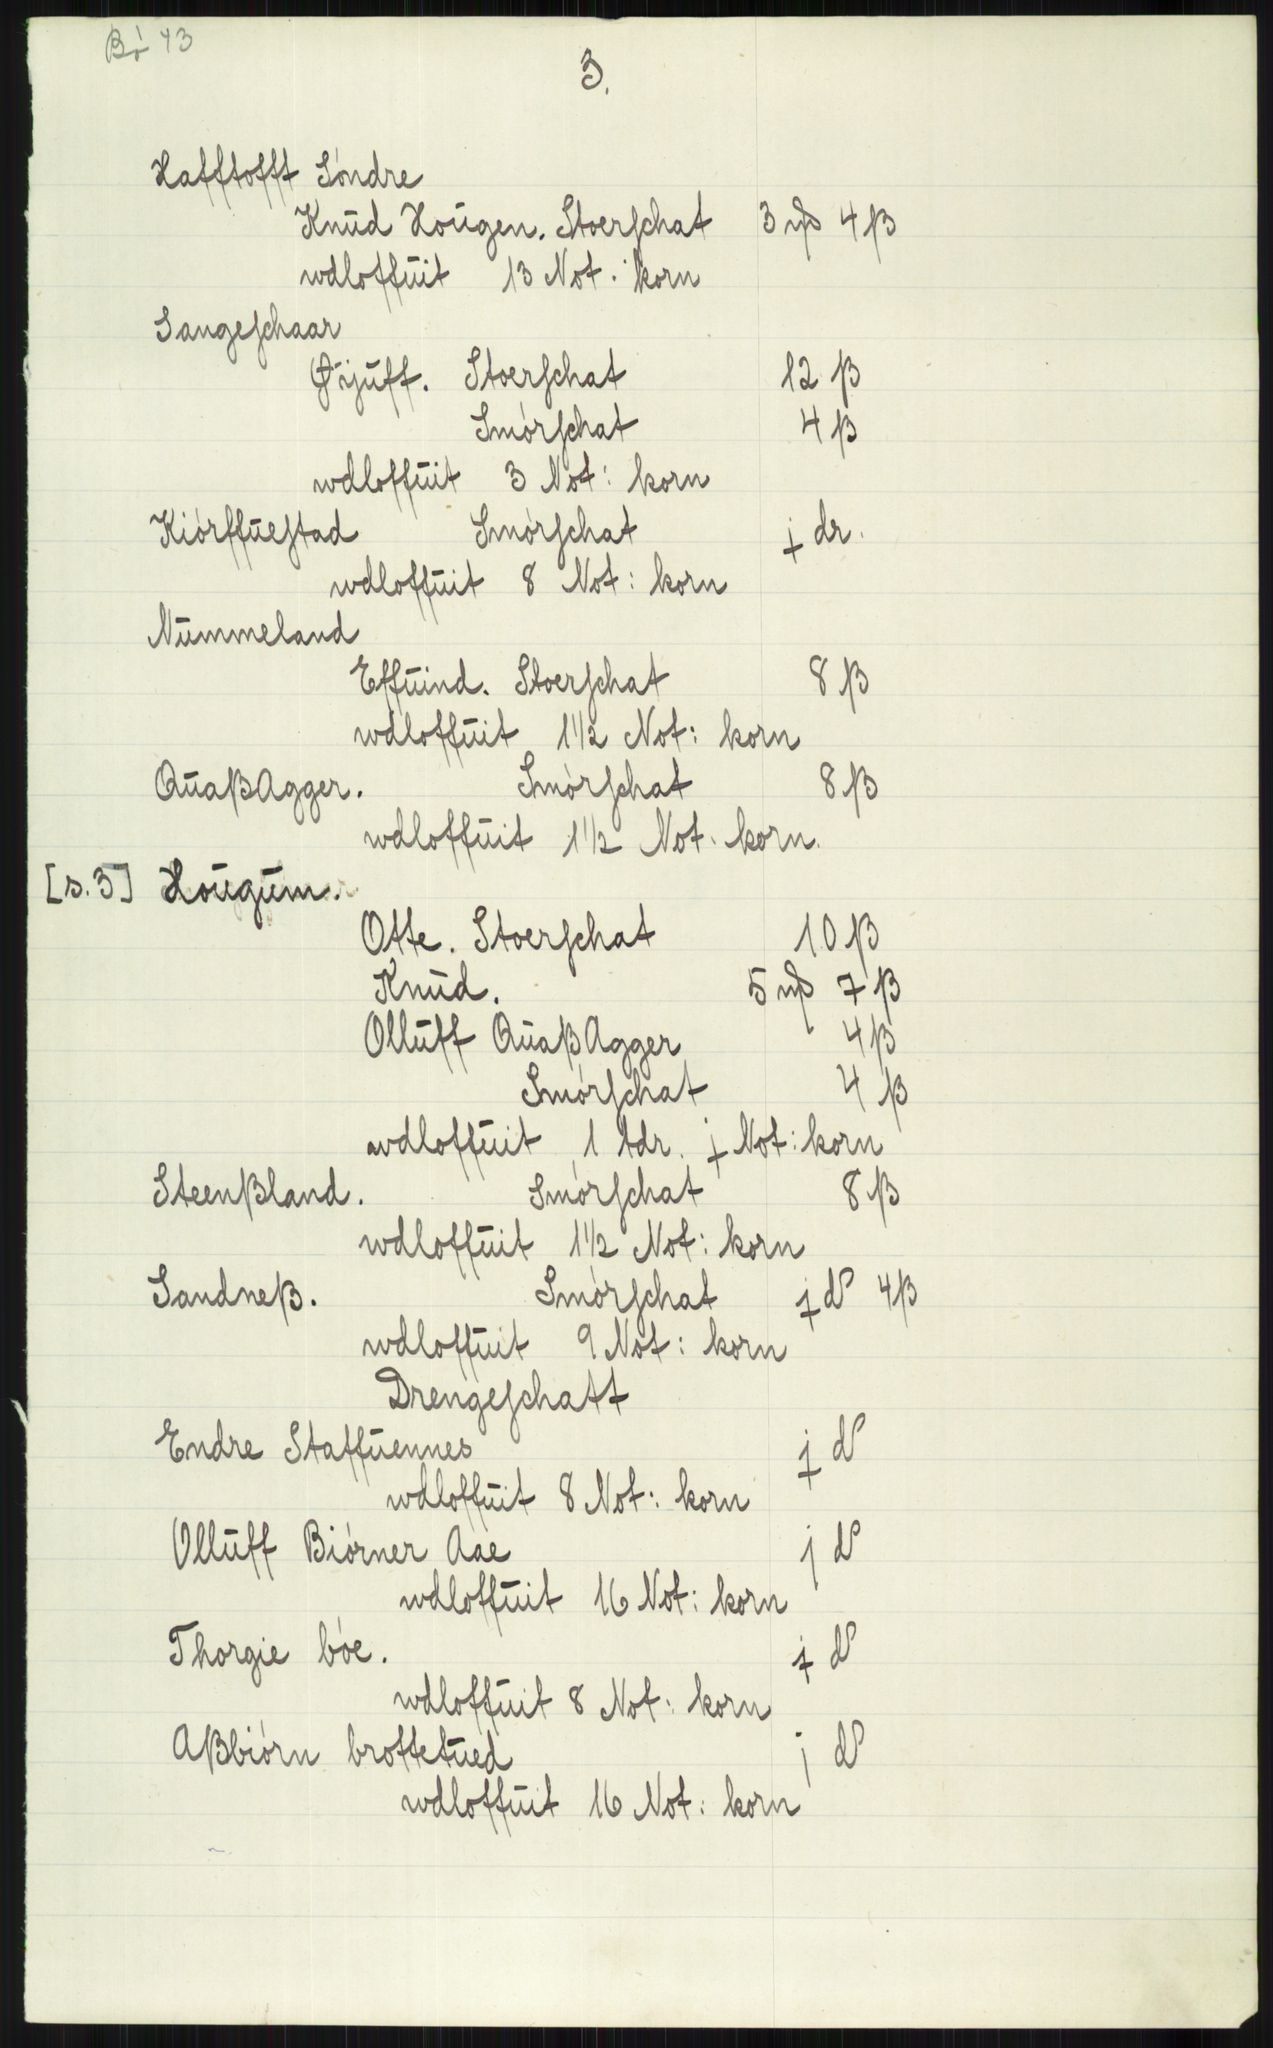 Bó 43
3.
Hafftofft Sóndre
Knūd Hoūgen. Stoerschat 3 m͠k 4 ß
wdloffūit 13 Not. korn
Sangeschaar
Stoerschat 12 ß
Smórschat 4 ß
wdloffūit 3 Not: korn
Kiórffūestad Smórschat ɉ dr.
wdloffūit 8 Not: korn
Nūmmeland
Effūind. Stoerschat 8 ß
wdloffūit 1 1/2 Not: korn
QūaßAgger. Smórschat 8 ß
wdloffūit 1 1/2 Not. korn.
[s.3] Hoūgūm.
Otte. Stoerschat 10 ß
Knūd. 5 m͠k 7 ß
Ollūff QūaßAgger 4 ß
Smórschat 4 ß
wdloffūit 1 tdr. ɉ Not: korn
Steenßland. Smórschat 8 ß
wdloffūit 1 1/2 Not: korn
Sandneß. Smórschat ɉ d 4 ß
wdloffūit 9 Not: korn
Drengeschatt
Endre Staffūennes ɉ d
wdloffūit 8 Not: korn
Ollūff Biórner Aae j d
wdloffūit 16 Not: korn
Thorgie bóe. ɉ d
wdloffūit 8 Not: korn
Aßbiórn brottetūed j d
wdloffūit 16 Not: korn